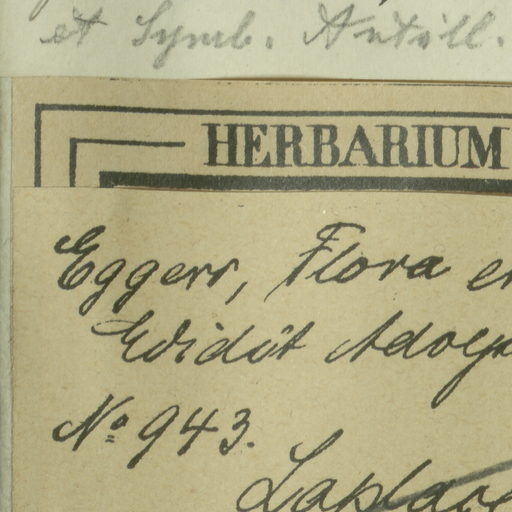 et Symb. Antill.
HERBARIUM
Eggers, Flora
Edidit Adolp
No 943.
Laplac